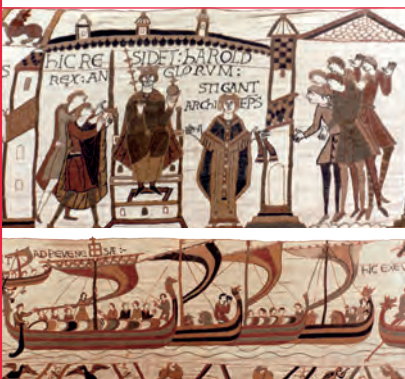 HIC RE SIDET: HAROLD
REX: AN GLORVM:
STIGANT
ARCHI EPS
AD PEVENE SÆ:-
HIC EXEV